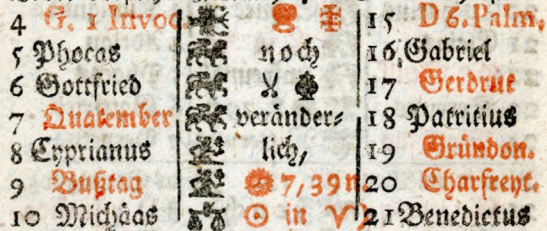 4 G. 1 Invoc. 15 D 6. Palm.
5 Phocas noch 16 Gabriel
6 Gottfried 17 Gerdrut
7 Quatember veränder= 18 Patritius
8 Cyprianus lich, 19 Gründon.
9 Bußtag 7, 39 n 20 Charfreyt.
10 Michäas ☉ in ♈ 21 Benedictus